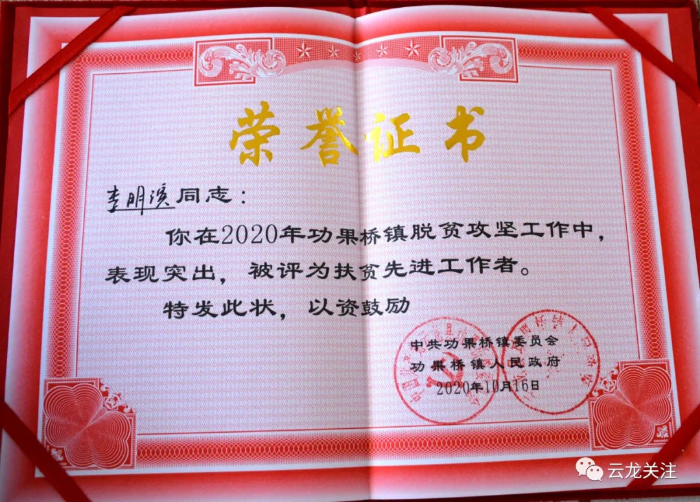 荣誉证书
李明滨同志：
你在2020年功果桥镇脱贫攻坚工作中，
表现突出，被评为扶贫先进工作者。
特发此状，以资鼓励
中共功果桥镇委员会
功果桥镇人民政府
2020年10月16日
云龙关注